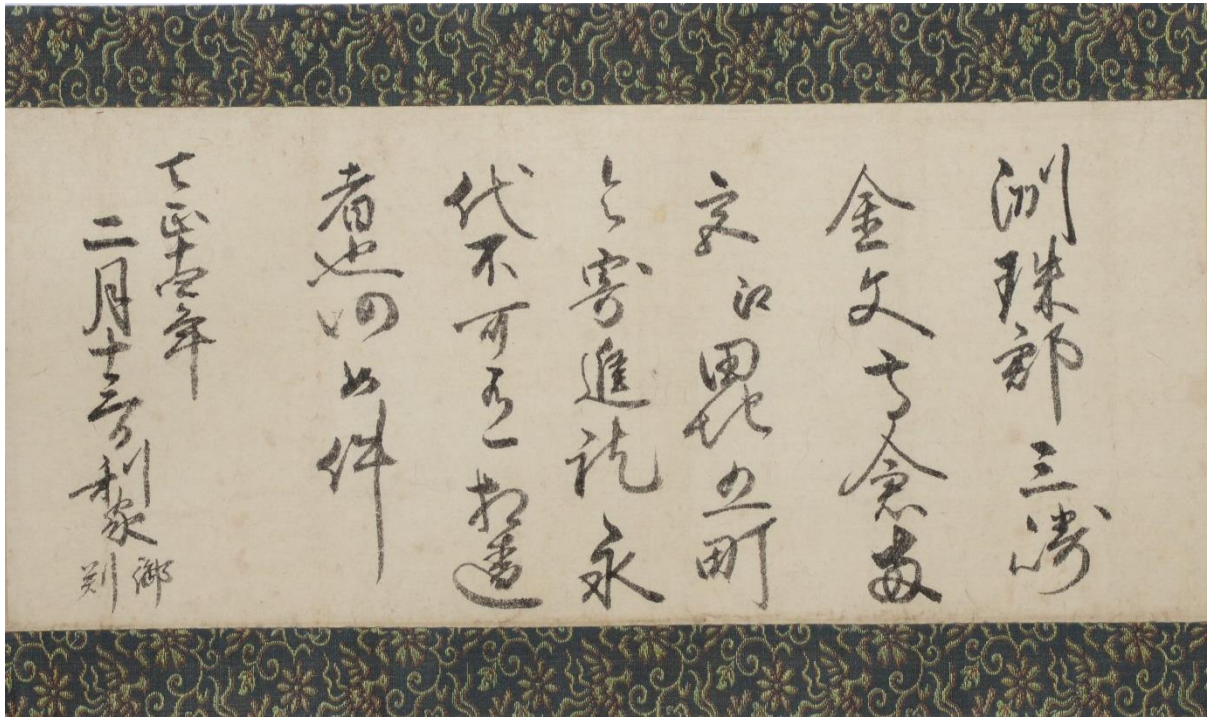 洲珠郡三崎
金文高倉両
宮江田地五町
令寄進訖永
代不可有相違
者也仍如件
天正十四年
二月十三日利家御判